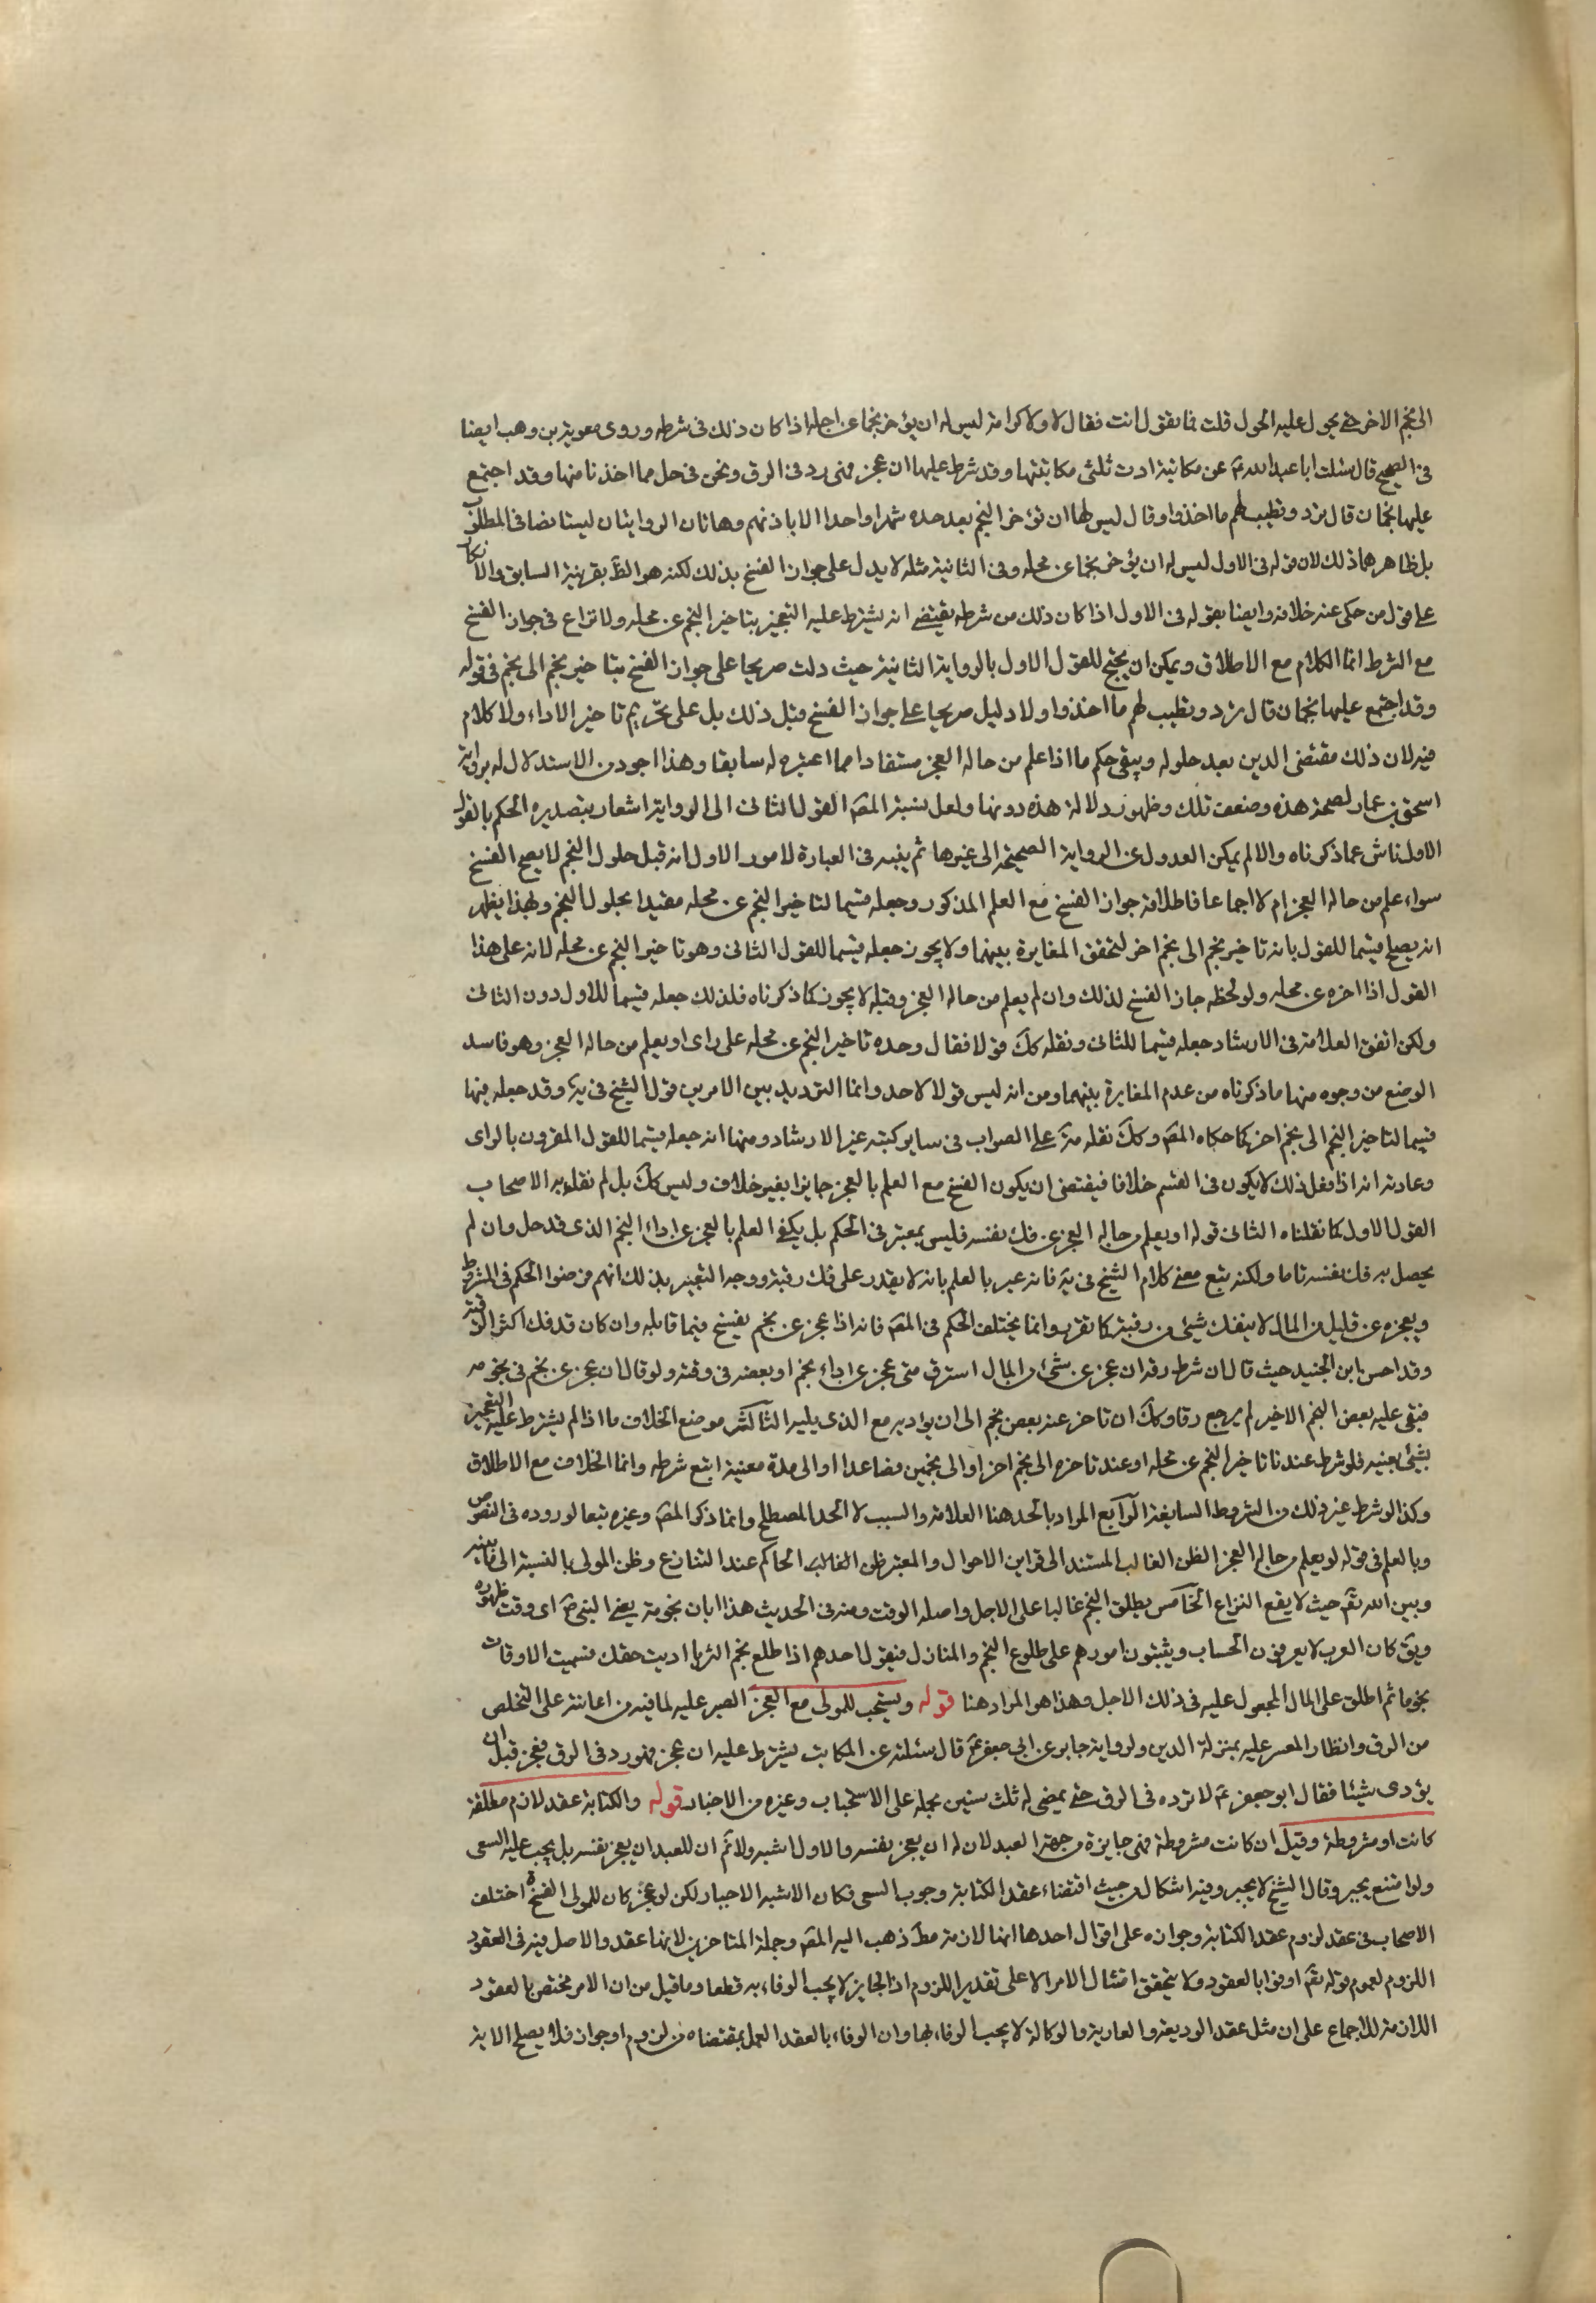 الى نجم الاخر حتى يحول عليه الحول قلت فما تقول انت فقال لا ولا كرامة ليس له ان يؤخر نجما عن اجله اذا كان ذلك فى شرطه وروى معوية بن وهب ايضا
فى الصحيح قال سئلت ابا عبد الله ع عن مكاتبة ادت ثلثى مكاتبتها وقد شرط عليها ان عجزت فهى رد فى الرق ونحن فى حل مما اخذنا منها وقد اجتمع
عليها نجمان قال ترد وتطيب لهم ما اخذوا وقال ليس لها ان تؤخر النجم بعد حده شهرا واحدا الا باذنهم وهاتان الروايتان ليستا نصا فى المطلوب
بل ظاهرهما ذلك لان قوله فى الاول ليس له ان يؤخر نجما عن محله وفى الثانية مثله لا يدل على جواز الفسخ بذلك لكنه هو الظ بقرينة السابق والانكار
على قول من حكى عنه خلافه وايضا بقوله فى الاول اذا كان ذلك من شرطه يقتضى انه يشترط عليه التعجيز بتاخير النجم عن محله ولا نزاع فى جواز الفسخ
مع الشرط انما الكلام مع الاطلاق ويمكن ان يحتج للقول الاول بالرواية الثانية حيث دلت صريحا على جواز الفسخ بتاخير نجم الى نجم فى قوله
وقد اجتمع عليها نجمان قال ترد وتطيب لهم ما اخذوا ولا دليل صريحا على جواز الفسخ قبل ذلك بل على تحريم تاخير الاداء ولا كلام
فيه لان ذلك مقتضى الدين بعد حلوله ويبقى حكم ما اذا علم من حاله العجز مستفادا مما اعتبره له سابقا وهذا اجود من الاستدلال له برواية
اسحق بن عمار لصحة هذه وضعف تلك وظهور دلالة هذه دونها ولعل نسبة المصَ القول الثانى الى الرواية اشعار بتصديره الحكم بالقول
الاول ناش عما ذكرناه والا لم يمكن العدول عن الرواية الصحيحة الى غيرها ثم ينبه فى العبارة لامور الاول انه قبل حلول النجم لا يصح الفسخ
سواء علم من حاله العجز ام لا اجماعا فاطلاقه جواز الفسخ مع العلم المذكور وجعله قسيما لتاخير النجم عن محله مقيدا بحلول النجم وبهذا يظهر
انه يصلح قسيما للقول بانه تاخير نجم الى نجم اخر لتحقق المغايرة بينهما ولا يجوز جعله قسيما للقول الثانى وهو تاخير النجم عن محله لانه على هذا
القول اذا اخره عن محله ولو لحظة جاز الفسخ لذلك وان لم يعلم من حاله العجز وقبله لا يجوز كما ذكرناه فلذلك جعله قسيما للاول دون الثانى
ولكن اتفق العلامة فى الارشاد جعله قسيما للثانى ونقله كك قولا فقال وحده تاخير النجم عن محله على راى او يعلم من حاله العجز وهو فاسد
الوضع من وجوه منها ما ذكرناه من عدم المغايرة بينهما ومن انه ليس قولا لاحد وانما الترديد بين الامرين قول الشيخ فى يَة وقد جعله فيها
قسيما لتاخير النجم الى نجم اخر كما حكاه المصَ وكك نقله هو على الصواب فى ساير كتبه غير الارشاد ومنها انه جعله قسيما للقول المقرون بالراى
وعادته انه اذا فعل ذلك لا يكون فى القسم خلافا فيقتضى ان يكون الفسخ مع العلم بالعجز جايزا بغير خلاف وليس كك بل لم نقل به الاصحاب
القول الاول كما نقلناه الثانى قوله او يعلم من حاله العجز عن فك نفسه فليس بمعتبر فى الحكم بل يكفى العلم بالعجز عن اداء النجم الذى قد حل وان لم
يحصل به فك نفسه تاما ولكنه تبع معنى كلام الشيخ فى يَة فانه عبر بالعلم بانه لا يقدر على فك رقبته ووجه التعبير بذلك انهم فرضوا الحكم فى المشروط
وبعجزه عن قليل من المال لا ينفك شيئ من رقبته كما تقرر وانما يختلف الحكم فى المصَ فانه اذا عجز عن نجم يفسخ فيما قابله وان كان قد فك اكثر الرقبة
وقد احسن ابن الجنيد حيث قال ان شرط رقه ان عجز عن شئ من المال استرق متى عجز عن اداء نجم او بعضه فى وقته ولو قال ان عجز عن نجم فى نجومه
فبقى عليه بعض النجم الاخير لم يرجع رقا وكك ان تاخر عنه بعض نجم الى ان يؤديه مع الذى يليه الثالث موضع الخلاف ما اذا لم يشترط عليه التعجيز
بشئ بعينه فلو شرط عندنا تاخير النجم عن محله او عند تاخره الى نجم اخر او الى نجمين فصاعدا او الى مدة معينة اتبع شرطه وانما الخلاف مع الاطلاق
وكذا لو شرط غير ذلك من الشروط السايغة الرابع المراد بالحد هنا العلامة والسبب لا الحد المصطلح وانما ذكر المصَ وغيره تبعا لوروده فى النصوص
وبالعلم فى قوله لو يعلم من حاله العجز الظن الغالب المستند الى قراين الاحوال والمعتبر ظن الغالب الحاكم عند التنازع وظن المولى بالنسبة الى ما بينه
وبين الله تع حيث لا يقع النزاع الخامس يطلق النجم غالبا على الاجل واصله الوقت ومنه فى الحديث هذا ابان نجومه يعنى النبى ص اى وقت ظهوره
ويق كان العرب لا يعرفون الحساب ويثبتون امورهم على طلوع النجم والمنازل فيقول احدهم اذا طلع نجم الثريا اديت حقك فسميت الاوقات
نجوما ثم اطلق على المال المجعول عليه فى ذلك الاجل وهذا هو المراد هنا قوله ويستحب للمولى مع العجز الصبر عليه لما فيه من اعانته على التخلص
من الرق وانظار المعسر عليه بمنزلة الدين ولرواية جابر عن ابى جعفر ع قال سئلته عن المكاتب يشترط عليه ان عجز فهو رد فى الرق فعجز قبل ان
يؤدى شيئا فقال ابو جعفر ع لا ترده فى الرق حتى يمضى له ثلث سنين بحمله على الاستحباب وغيره من الاخبار قوله والكتابة عقد لازم مطلقة
كانت او مشروطة وقيل ان كانت مشروطة فهى جايزة من جهة العبد لان له ان يعجز نفسه والاول اشبه ولا ثم ان للعبد ان يعجز نفسه بل يجب عليه السعى
ولو امتنع يجبر وقال الشيخ لا يجبر وفيه اشكال من حيث اقتضاء عقد الكتابة وجوب السعى فكان الاشبه الاجبار لكن لو عجز كان للمولى الفسخ اختلف
الاصحاب فى عقد لزوم عقد الكتابة وجوازه على اقوال احدها انها لازمة مط ذهب اليه المصَ وجملة المتاخرين لانها عقد والاصل فيه فى العقود
اللزوم لعموم قوله تع اوفوا بالعقود ولا يتحقق امتثال الامر الا على تقدير اللزوم اذ الجايز لا يجب الوفاء به قطعا وما قيل من ان الامر مختص بالعقود
اللازمة للاجماع على ان مثل عقد الوديعة والعارية والوكالة لا يجب الوفاء بها وان الوفاء بالعقد العمل بمقتضاه من لزوم او جواز فلا يصلح الاية